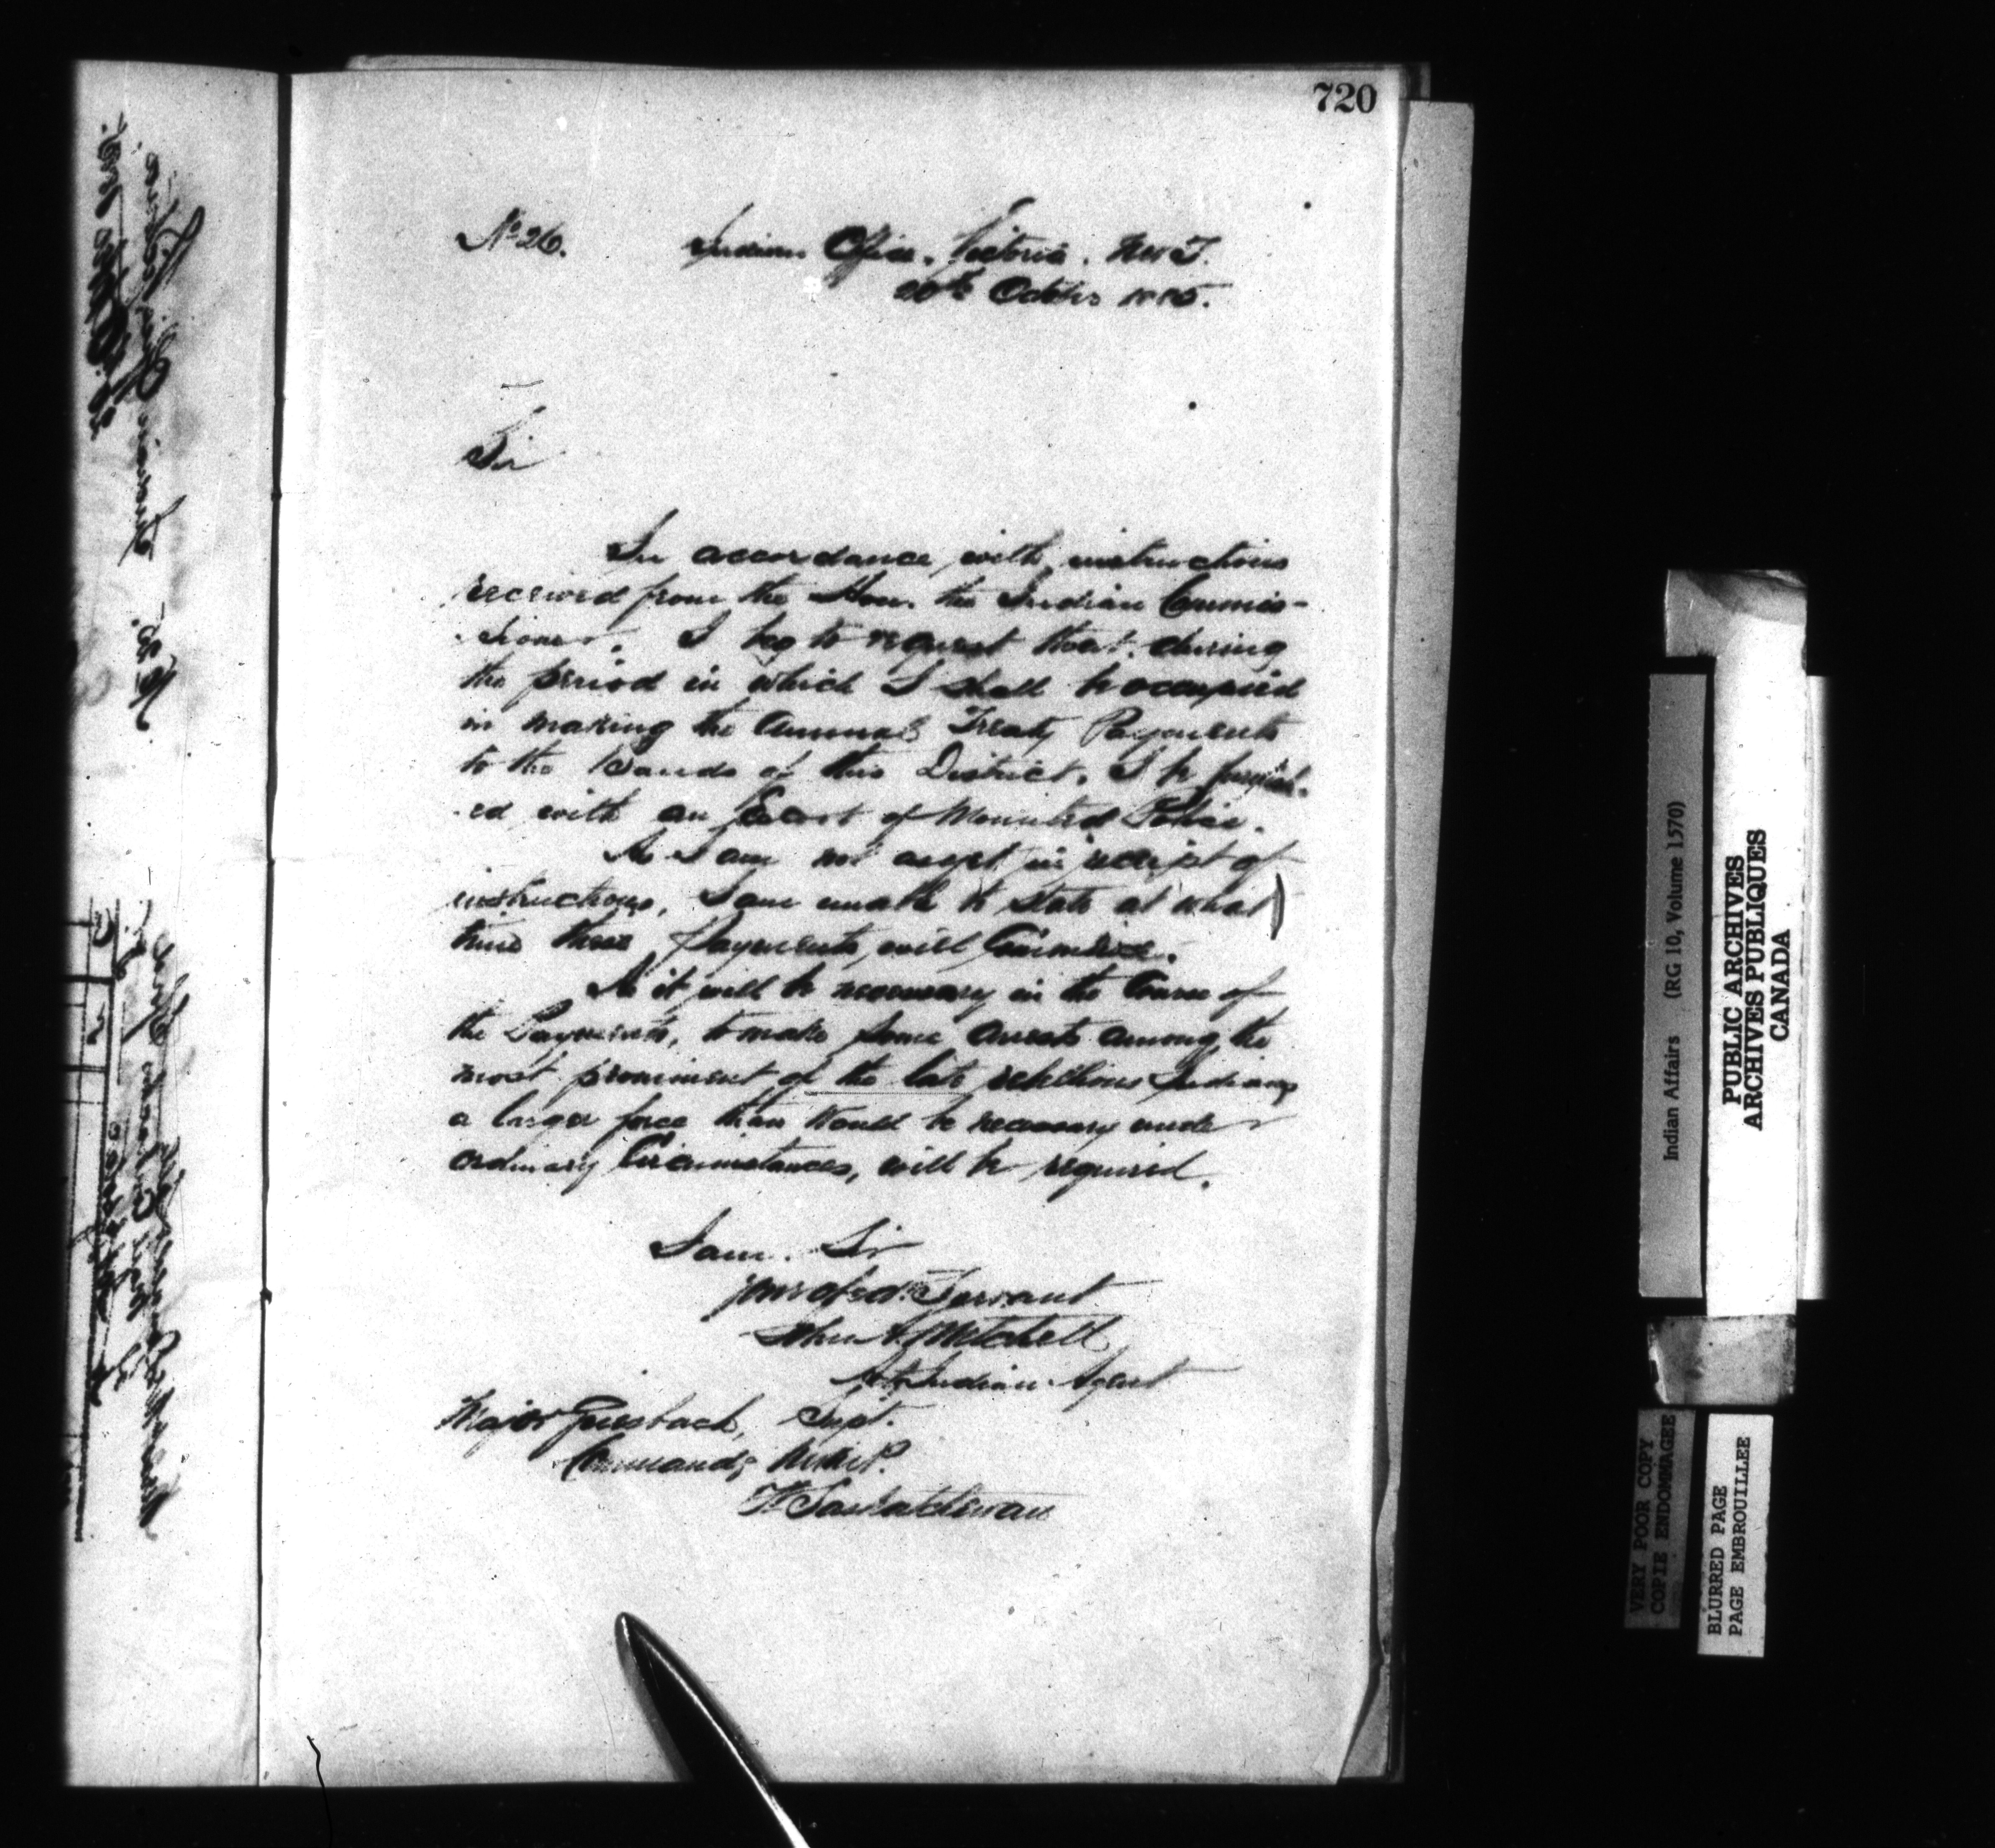 720
No 26. Indian Office. Victoria. N.W.T.
20th October 1885.
Sir
In accordance with instructions
received from the Hon. the Indian Commis-
-sioner. I beg to request that during
the period in which I shall be occupied
in making the Annual Treaty Payments
to the Bands of this District, I be furnish-
-ed with an Escort of Mounted Police.
As I am not as yet in receipt of
instructions, I am unable to state at what
time these Payments will Commence.
As it will be necessary in the Course of
the Payments, to make some arrests among the
most prominent of the late rebellious Indians
a larger force than would be necessary under
ordinary Circumstances, will be required.
I am. Sir
your obdt. Servant
John A. Mitchell
Actg Indian Agent
Major Griesbach, Supt.
Commandg N.W.M.P.
Ft. Saskatchewan
Indian Affairs (RG 10, Volume 1570)
PUBLIC ARCHIVES
ARCHIVES PUBLIQUES
CANADA
VERY POOR COPY
COPIE ENDOMMAGEE
BLURRED PAGE
PAGE EMBROUILLEE